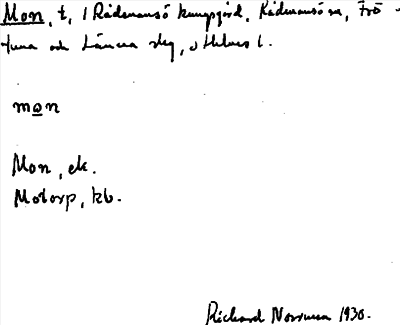 Mon, t, i Rådmansö kungsgård, Rådmansö sn, Frö-
tuna och Länna skg, Sthlms l.
mon
Mon, ek.
Motorp, kb.
Richard Norrman 1930.